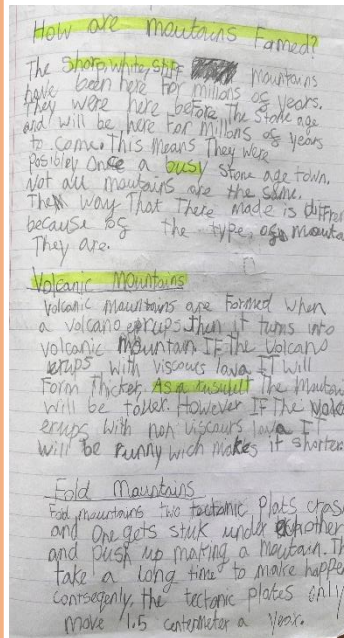 How are moutains Formed?
The sharp, white, stiff mountains
have been here for millons of years.
They were here before The stone age
and will be here for millons of years
to come. This means They were
posibley once a busy stone age town.
Not all moutains are the same.
The way That There made is differ
because of the type, of mouta
They are.
Volcanic Mountains
Volcanic mauntains are Formed when
a volcano erups. then it turns into
volcanic mountain IF The Volcano
erups with viscours lava IT will
Form Thicker. As a insult The Moutain
will be taller. However IF The
erups with non viscours lava IT
will be runny wich makes it shorter.
Fold Mountains
Fod mountains two tectonic plats cras
and one gets stuk under
and push up making a moutain. Th
take a long time to make happe
contseqenly, the tectonic plates only
move 1.5 centermeter a year.